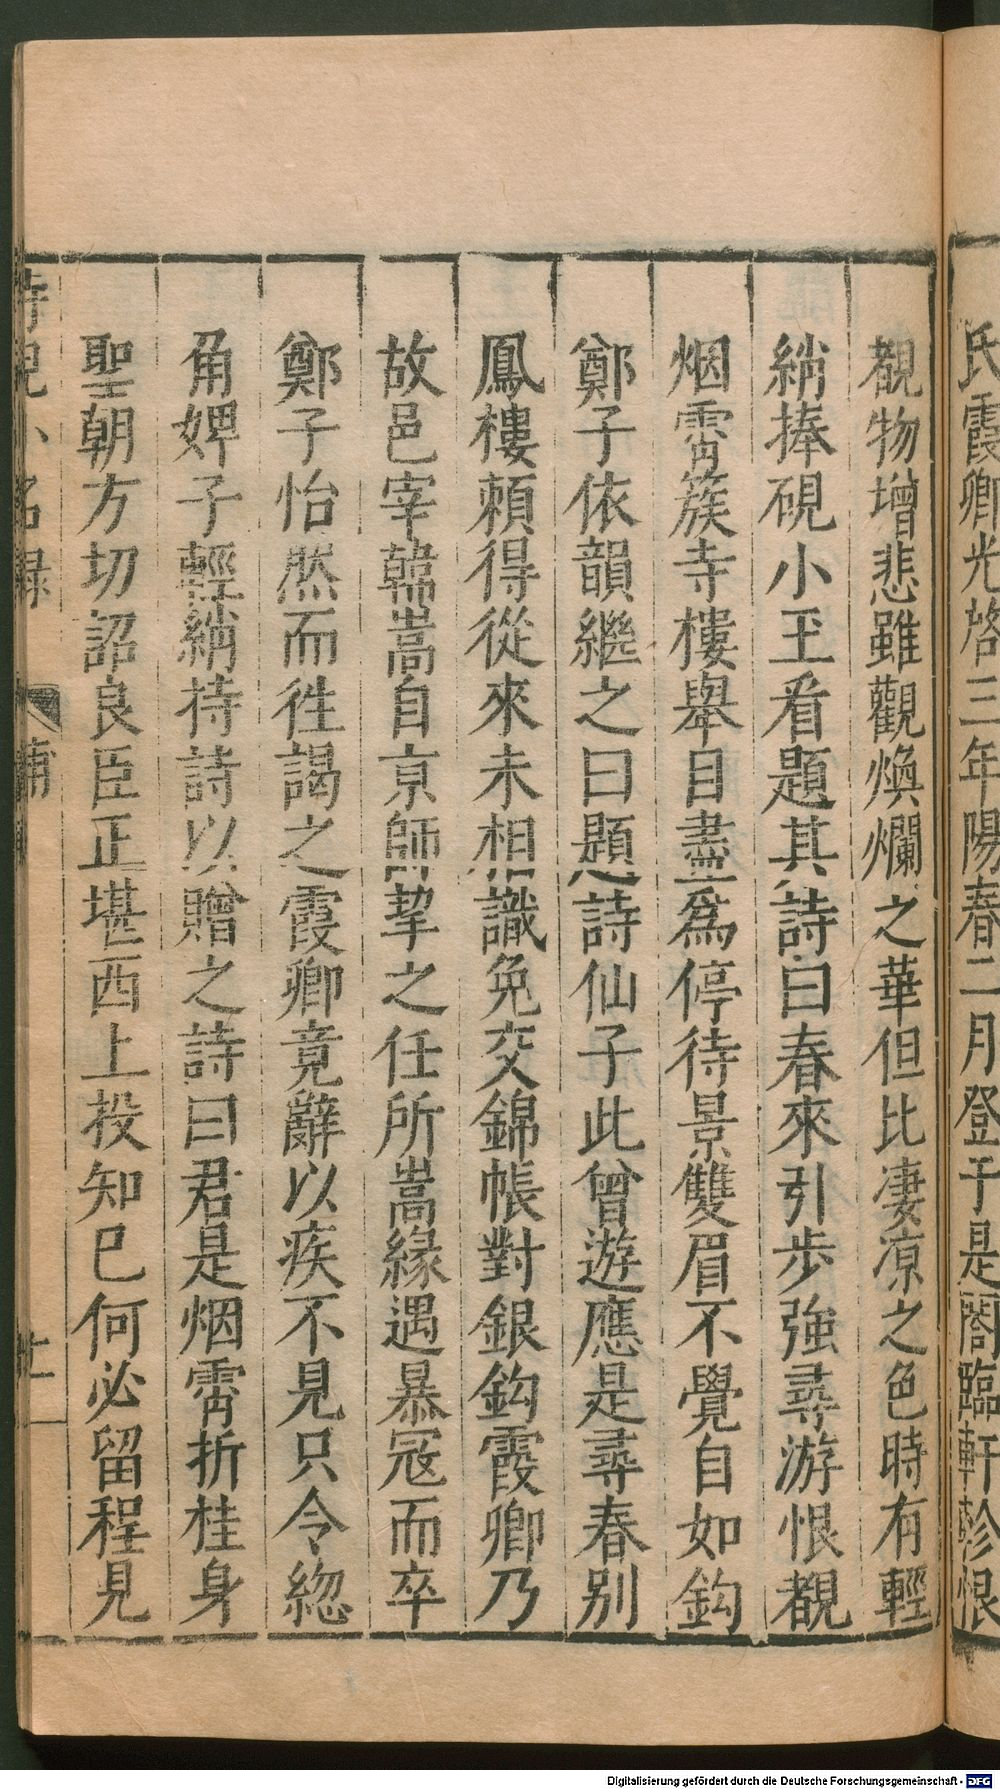 氏霞卿光啓三年陽春二月登于是閣臨軒軫恨
覩物增悲雖觀煥爛之華但比凄凉之色時有輕
綃捧硯小玉看題其詩曰春來引步強尋游恨覩
烟霄簇寺樓舉目盡爲停待景雙眉不覺自如鈎
鄭子依韻繼之曰題詩仙子此曾遊應是尋春別
鳳樓頼得從來未相識免交錦帳對銀鈎霞卿乃
故邑宰韓嵩自亰師挈之任所嵩緣遇暴冦而卒
鄭子怡然而徃謁之霞卿竟辭以疾不見只令緫
角婢子輕綃持詩以贈之詩曰君是烟霄折桂身
聖朝方切詔良臣正堪西上投知巳何必留程見
侍兒小名録
補
廿一
Digitalisierung gefördert durch die Deutsche Forschungsgemeinschaft - DFG